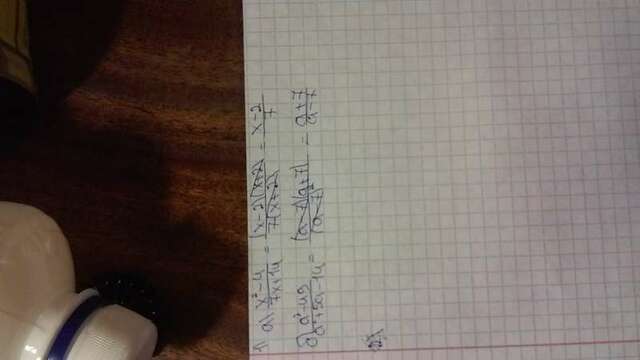 1. а) (x²-4)/(7x+14) = ((x-2)(x+2))/(7(x+2)) = (x-2)/7
(a²-49)/(a²+5a-14) = ((a-7)(a+7))/(a-7)² = (a+7)/(a-7)